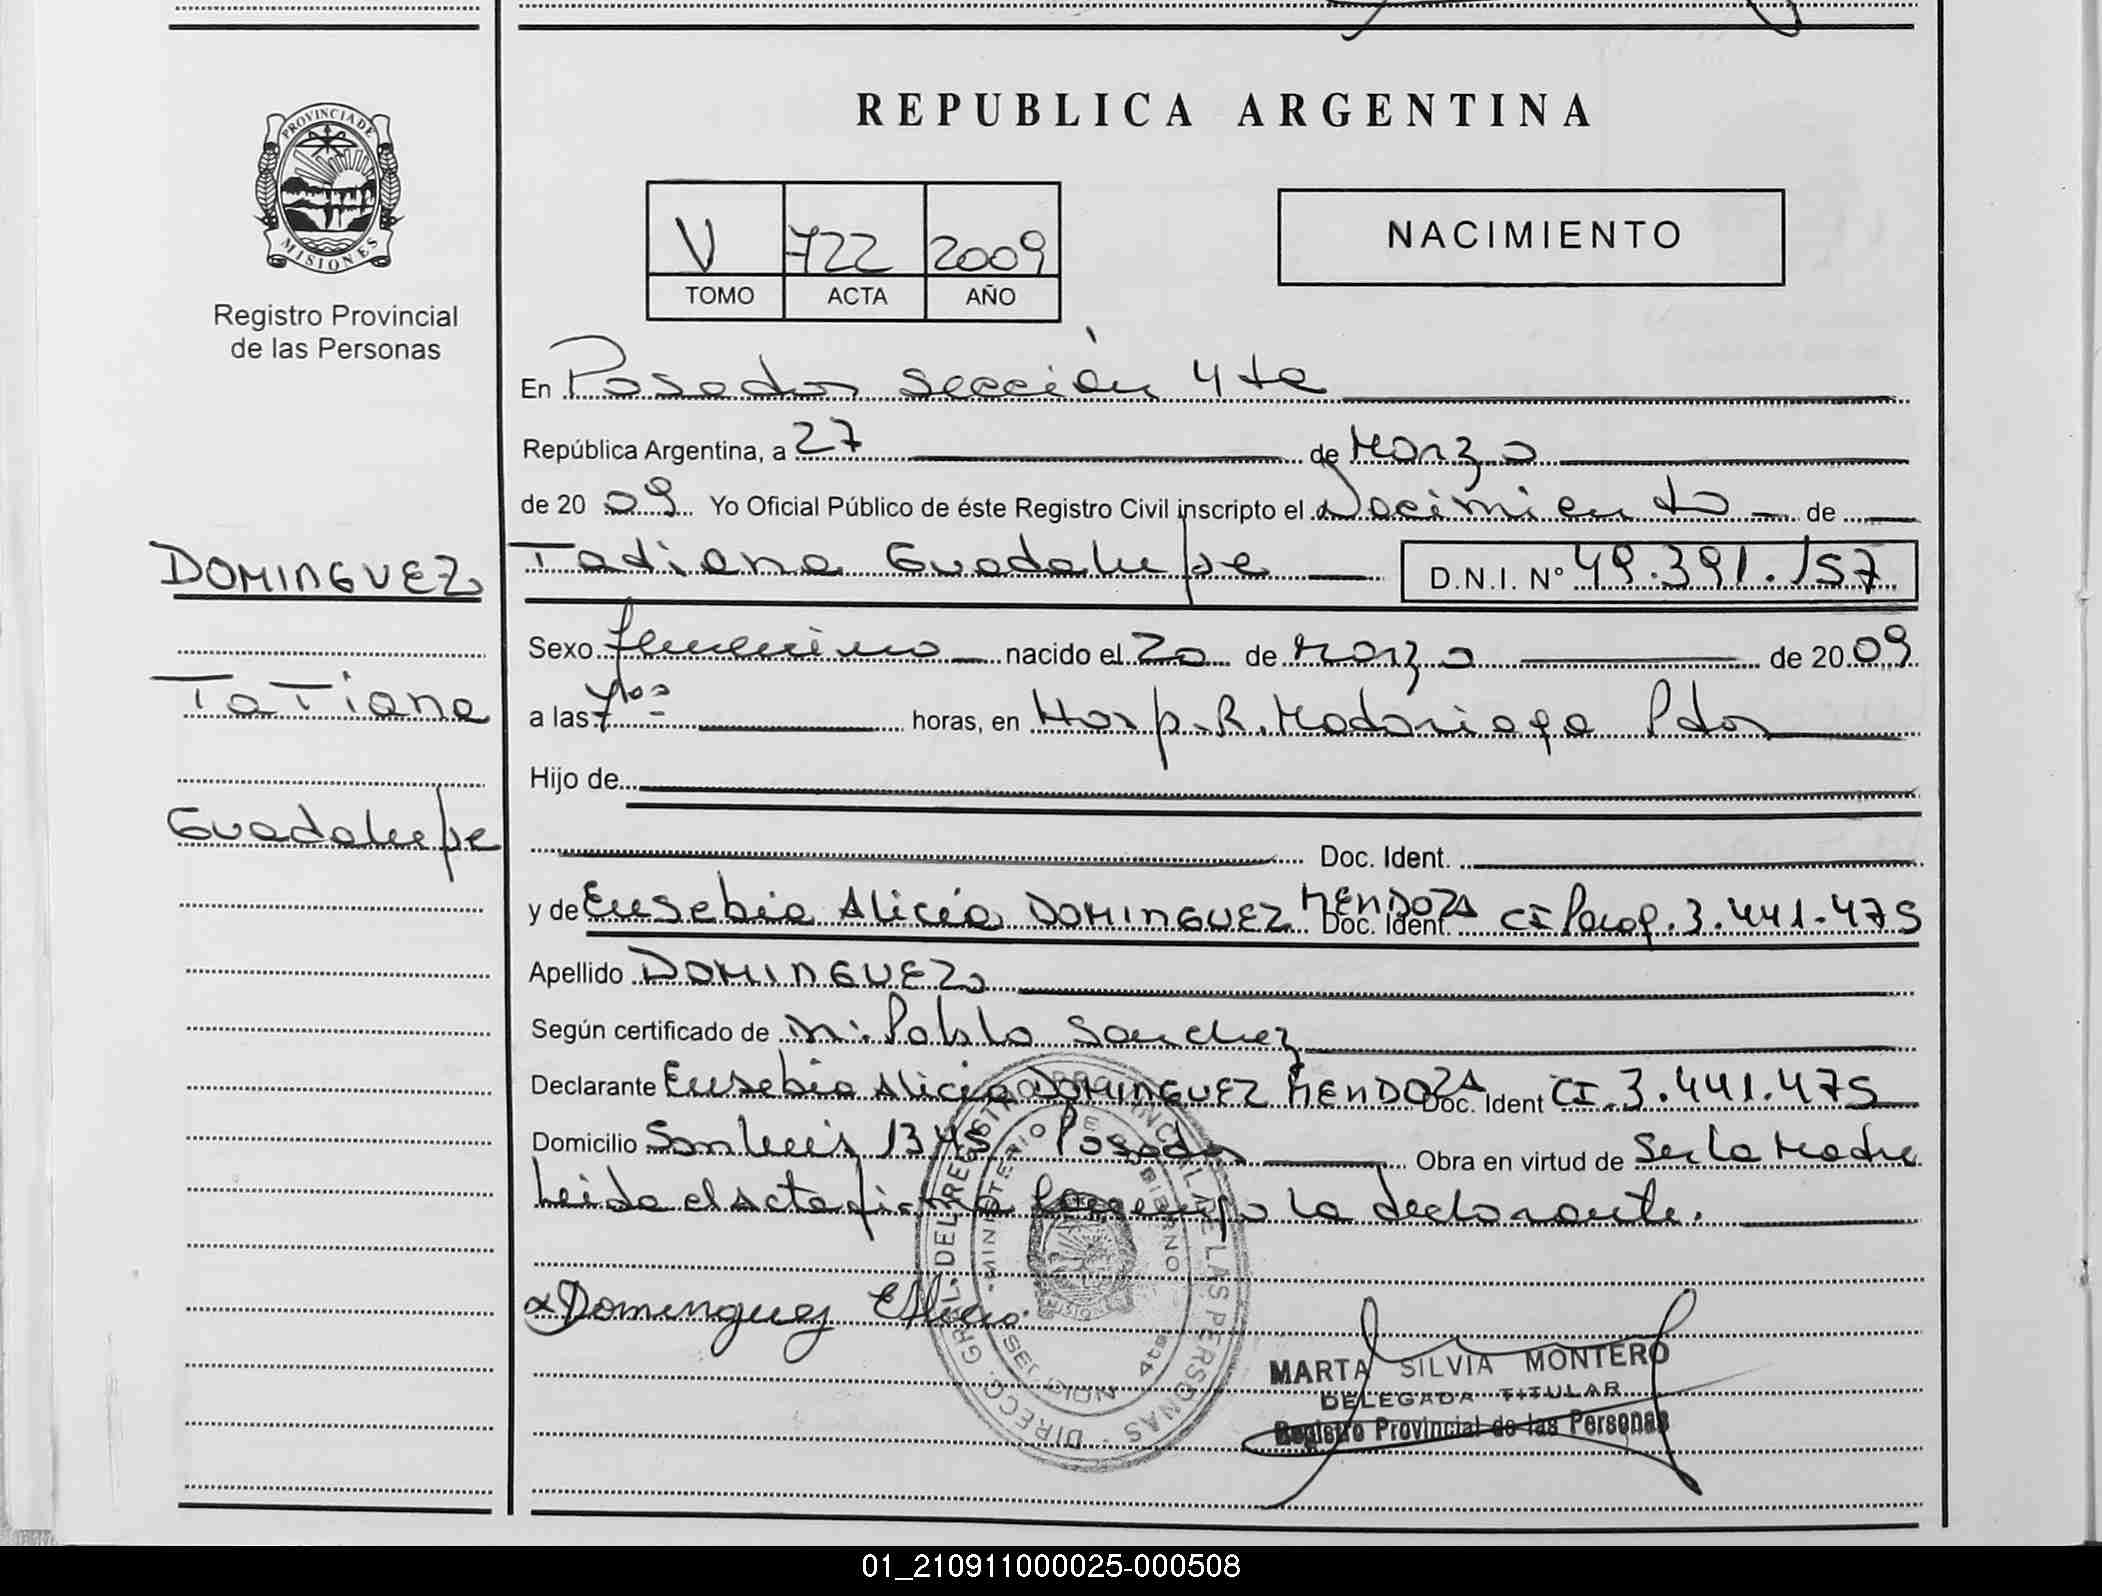 REPUBLICA ARGENTINA
PROVINCIA DE
MISIONES
Registro Provincial
de las Personas
V 722 2009
TOMO ACTA AÑO
NACIMIENTO
En Posadas sección 4ta
República Argentina, a 27 de Marzo
de 20 09 Yo Oficial Público de éste Registro Civil inscripto el Nacimiento de
DOMINGUEZ
Tatiana
Guadalupe
Tatiana Guadalupe D.N.I. N° 49.391.157
Sexo femenino nacido el 20 de Marzo de 20 09
a las 7 horas, en Hosp. R. Madariaga Pdas
Hijo de
Doc. Ident.
y de Eusebia Alicia DOMINGUEZ MENDOZA Doc. Ident. CI Parag. 3.441.475
Apellido DOMINGUEZ
Según certificado de Pablo Sanchez
Declarante Eusebia Alicia DOMINGUEZ MENDOZA Doc. Ident CI. 3.441.475
Domicilio San Luis 1345 Posadas Obra en virtud de Ser la Madre
Leida el Acta firma conmigo la declarante.
Dominguez
DIRECC. GRAL. DEL REGISTRO PROVINCIAL DE LAS PERSONAS
MINISTERIO DE GOBIERNO
SECCION 4ta
MARTA SILVIA MONTERO
DELEGADA TITULAR
Registro Provincial de las Personas
01_210911000025-000508